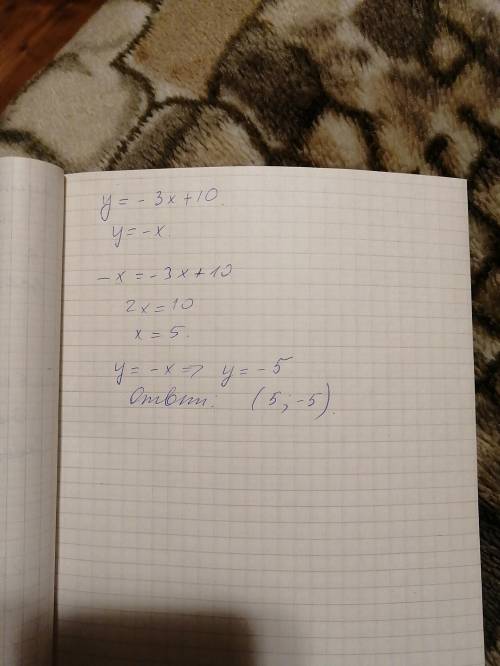 y = - 3x + 10.
y = -x
-x = -3x + 10
2x = 10
x = 5.
y = -x => y = -5
Ответ: (5; -5).